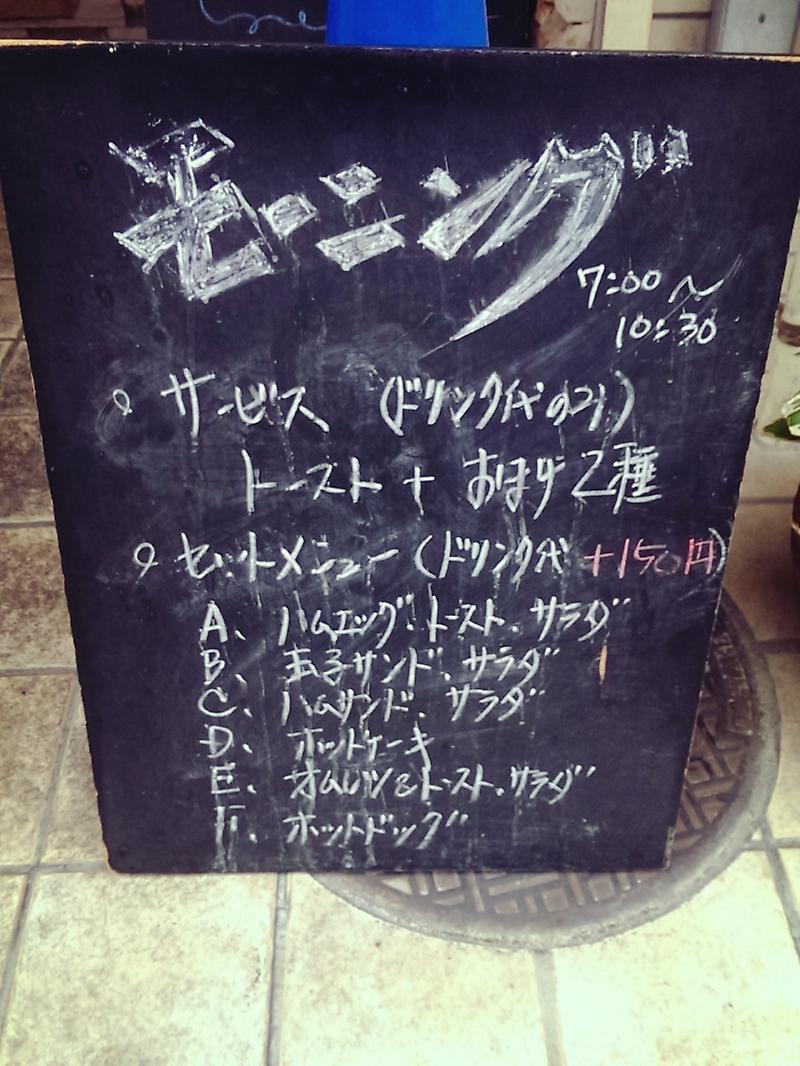 モーニング
7:00〜
10:30
サービス (ドリンク代のみ)
トースト + おまけ2種
セットメニュー (ドリンク代 +150円)
A、 ハムエッグ、トースト、サラダ
B、 玉子サンド、サラダ
C、 ハムサンド、サラダ
D、 ホットケーキ
E、 オムレツ&トースト、サラダ
F、 ホットドッグ